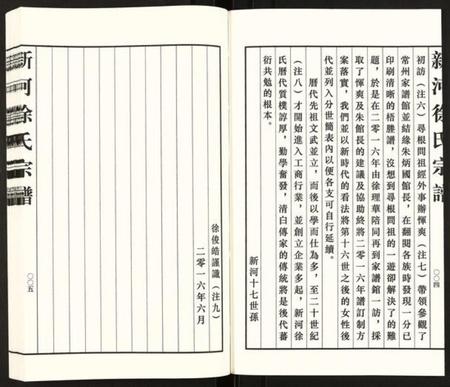 新河徐氏宗譜
〇〇四
初訪（注六）尋根問祖經外事辦惲奭（注七）帶領參觀了
常州家譜館並結緣朱炳國館長，在翻閱各族時發現一分已
印刷清晰的梧塍譜，沒想到尋根問祖的一遊卻解決了的難
題，於是在二零一六年由徐理華陪同再到家譜館一訪，採
取了惲奭及朱館長的建議及協助終將二零一六年譜訂制方
案落實，我們並以新時代的看法將第十六世之後的女性後
代並列入分世簡表內以便各支可自行延續。
曆代先祖文武並立，而後以學而仕為多，至二十世紀
（注八）才開始進入工商行業，並創立企業多起，新河徐
氏曆代質樸諄厚，勤學奮發，清白傳家的傳統將是後代蕃
衍共勉的根本。
新河十七世孫
徐俊皓謹識（注九）
二零一六年六月
新河徐氏宗譜
〇〇五